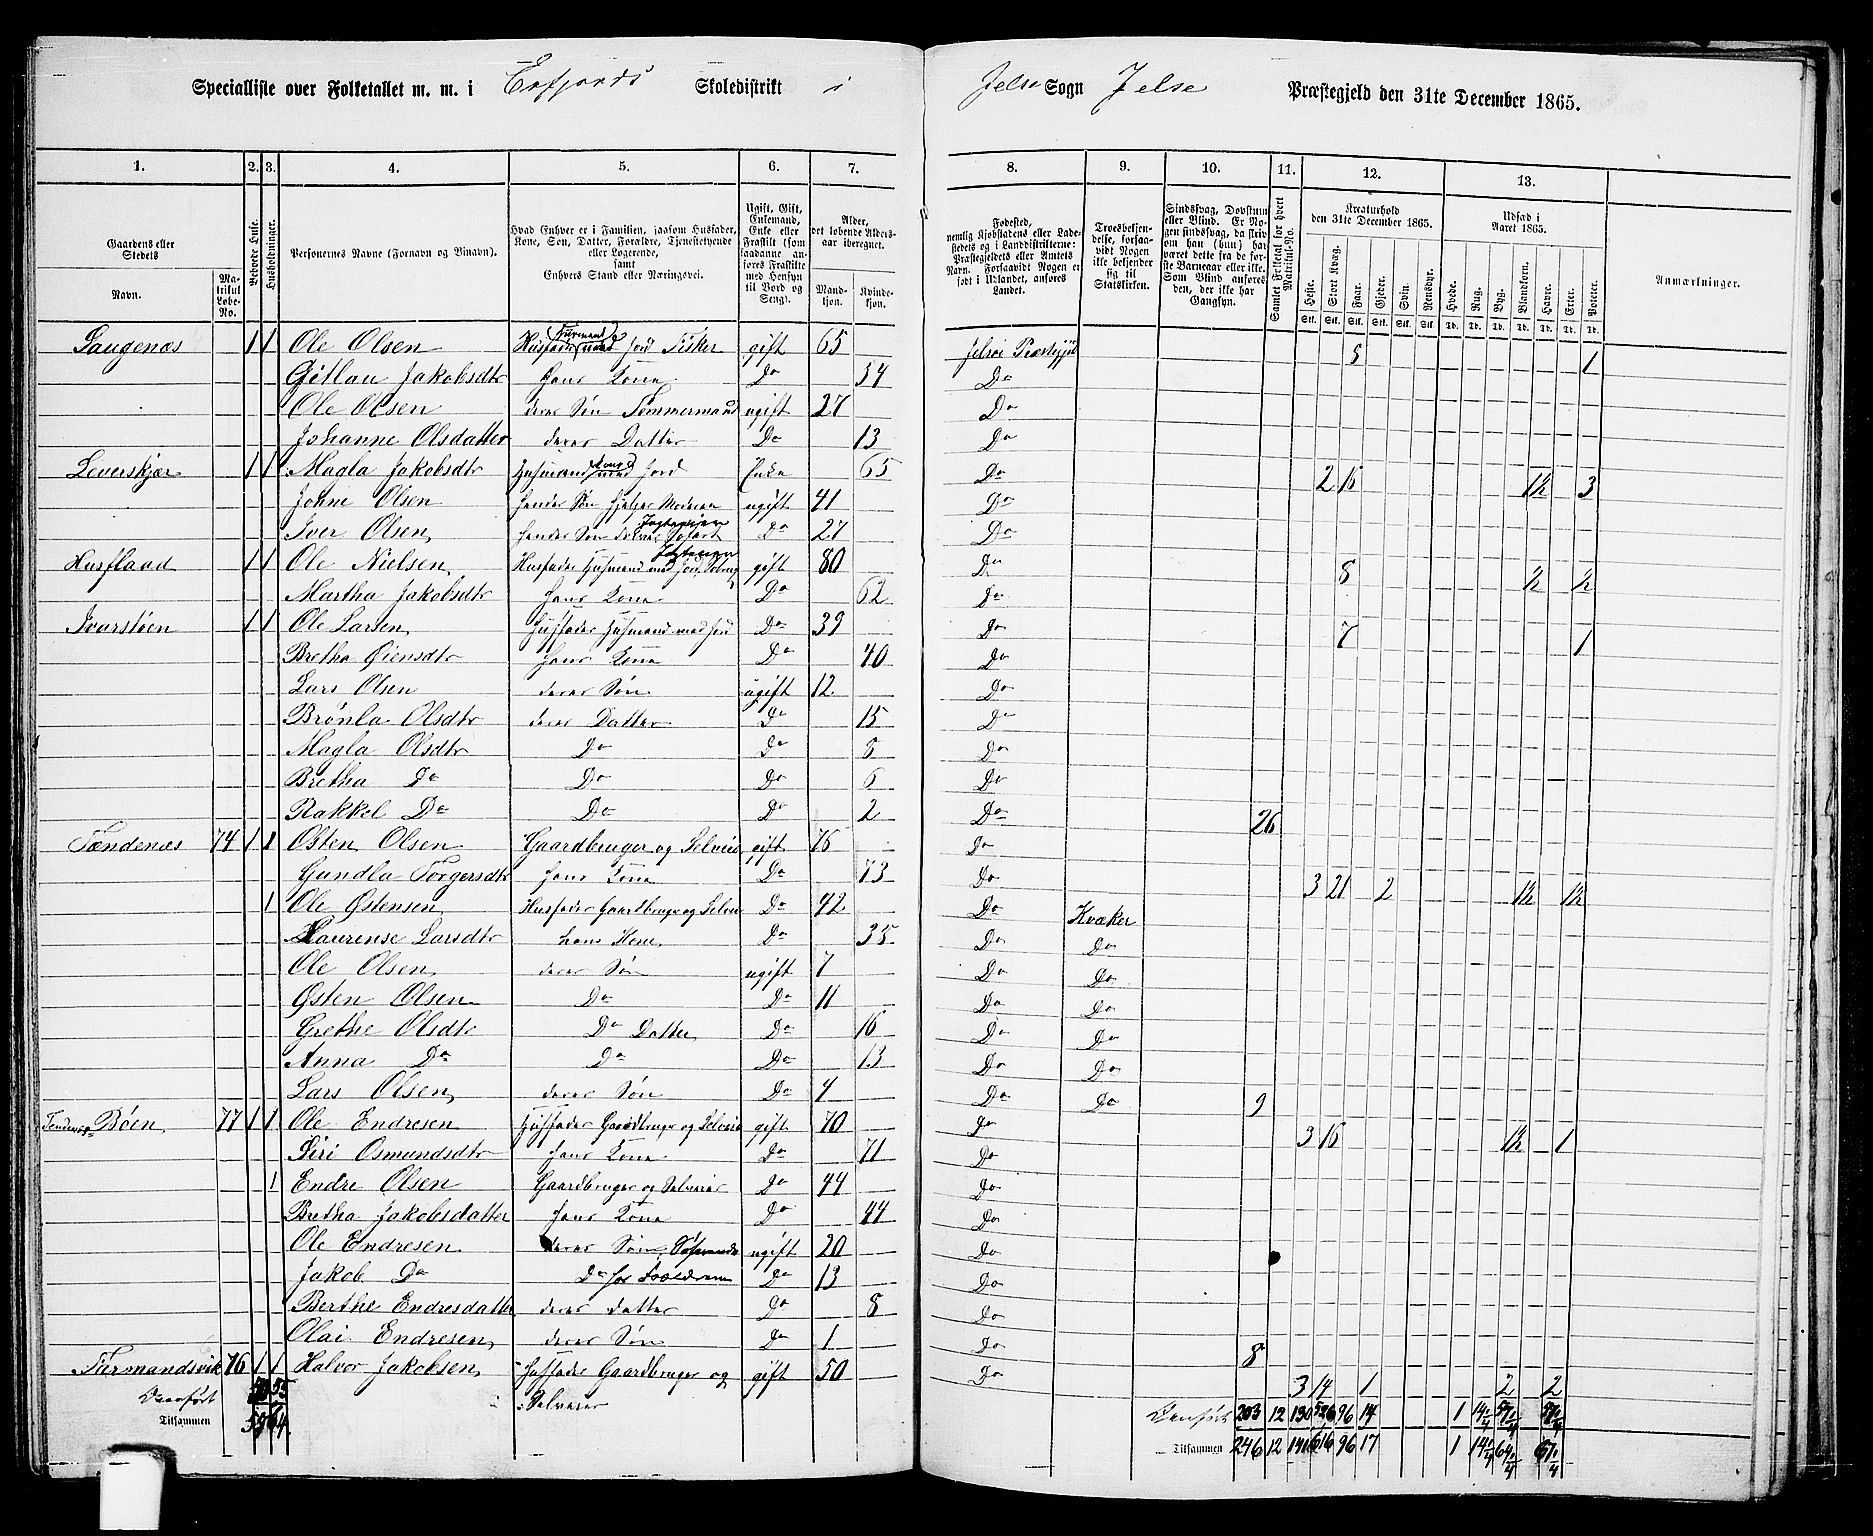 Specialliste over Folketallet m. m. i Erfjords Skoledistrikt i Jelse Sogn Jelse Præstegjeld den 31te December 1865.
1. 2. 3. 4. 5. 6. 7. 8. 9. 10. 11. 12. 13.
Gaardens eller Stedets Navn.
Matrikul Løbe-No.
Beboede Huse.
Husholdninger.
Personernes Navne (Fornavn og Binavn).
Hvad Enhver er i Familien, saasom Husfader, Kone, Søn, Datter, Forældre, Tjenestetyende eller Logerende, samt Enhvers Stand eller Næringsvei.
Ugift, Gift, Enkemand, Enke eller Fraskilt (som saadanne anføres Fraskilte med Hensyn til Bord og Seng).
Alder, det løbende Aldersaar iberegnet.
Mandkjøn. Kvindekjøn.
Fødested, nemlig Kjøbstadens eller Ladestedets og i Landdistrikterne: Præstegjeldets eller Amtets Navn. Forsaavidt Nogen er født i Udlandet, anføres Landet.
Troesbekjendelse, forsaavidt Nogen ikke bekjender sig til Statskirken.
Sindssvag, Døvstum eller Blind. Er Nogen sindssvag, da skrives om han (hun) har været dette fra de første Barneaar eller ikke. Som Blind anføres den, der ikke har Gangsyn.
Samlet Folketal for hvert Matrikul-No.
Kreaturhold den 31te December 1865.
Heste. Stort Kvæg. Faar. Gjeder. Svin. Rensdyr.
Udsæd i Aaret 1865.
Hvede. Rug. Byg. Blandkorn. Havre. Erter. Poteter.
Anmærkninger.
Saugenæs 1 1 Ole Olsen gift 65 Jelsøe Præstegjeld 5 1
Jakobsdtr Hans Kone Do 54 Do
Ole Olsen deres Søn Tømmermand ugift 27 Do
Johanne Olsdatter deres Datter Do 13 Do
Leverskjær 1 1 Magla Jakobsdtr Husmand med Jord Enke 65 Do 2 16 1½ 3
Johne Olsen hendes Søn hjelper Moderen ugift 41 Do
Iver Olsen hendes Søn Do 27 Do
Husflaad 1 1 Ole Nielsen Husfader Husmand med Jord gift 80 Do 8 ½ ½
Martha Jakobsdtr Hans Kone Do 62 Do
Ivarstøen 1 1 Ole Larsen Husfader Husmand med Jord Do 39 Do 7 1
Bretha Hans Kone Do 40 Do
Lars Olsen deres Søn ugift 12 Do
Brønla Olsdtr deres Datter Do 15 Do
Magla Olsdtr Do Do 5 Do
Bretha Do Do Do 6 Do
Rakkel Do Do Do 2 Do 26
Tændenæs 74 1 1 Østen Olsen Gaardbruger og Selveier gift 76 Do
Gundla Torgersdtr Hans Kone Do 73 Do 3 21 2 1½ 1½
1 Ole Østensen Husfader Gaardbruger og Selveier Do 42 Do Kvæker
Laurense Larsdtr hans Kone Do 35 Do Do
Ole Olsen deres Søn ugift 7 Do Do
Østen Olsen Do Do 11 Do Do
Grethe Olsdtr Do Datter Do 16 Do Do
Anna Do Do Do 13 Do Do
Lars Olsen deres Søn Do 4 Do Do 9
Tendenæs Bøen 77 1 1 Ole Endresen Husfader Gaardbruger og Selveier gift 70 Do 3 16 1½ 1
Siri Osmundsdtr Hans Kone Do 71 Do
1 Endre Olsen Gaardbruger og Selveier Do 44 Do
Bretha Jakobsdatter Hans Kone Do 44 Do
Ole Endresen deres Søn ugift 20 Do
Jakob Do Do hos Forældrene Do 13 Do
Berthe Endresdatter deres Datter Do 8 Do
Olai Endresen deres Søn Do 1 Do 8
76 1 1 Halvor Jakobsen Husfader Gaardbruger og Selveier gift 50 Do 3 14 1 2 2
Overført 203 12 96 14 1
Tilsammen 59 64 Tilsammen 246 12 96 17 1